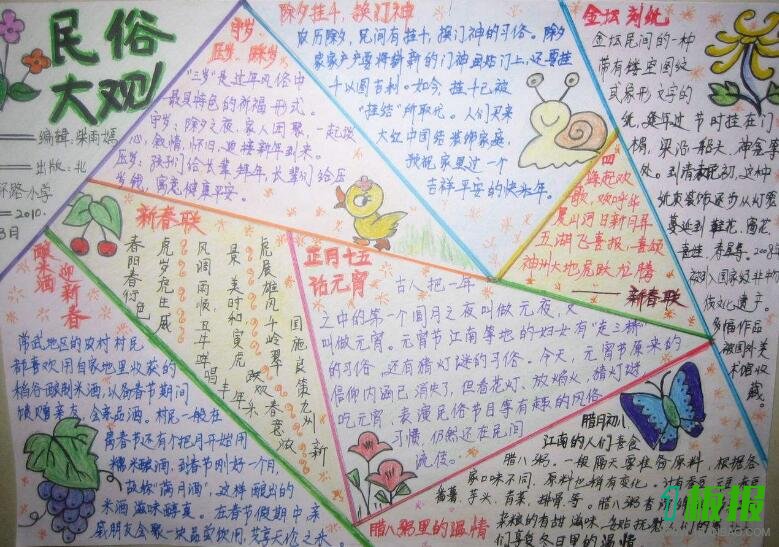 民俗
大观
编辑:柴雨嫣
出版:北
环路小学
2010.
守岁
压岁、踩岁
“三岁”是过年风俗中
最具特色的祈福形式。
守岁:除夕之夜,家人团聚,一起谈
心,叙情,怀旧,迎接新年到来。
压岁:孩们给长辈拜年,长辈们给压
岁钱,寓意健康平安。
除夕挂千,换门神
农历除夕,民间有挂千,换门神的习俗。除夕
家家户户要将新新的门神画贴门上,还要挂
千以图吉利。如今,挂千已被
“挂结”所取代。人们买来
大红中国结装饰家庭,
预祝家里过一个
吉祥平安的快乐年。
金坛刻纸
金坛民间的一种
带有镂空图纹
或象形文字的
纸,每年过节时挂在门
楣、梁沿、船头、神龛等
处。到清末民初,这种
纸束装饰逐步从灯彩
蔓延到鞋花、窗花
喜娃、寿星等。2008年
被列入国家级非物
传文化遗产。
多幅作品
被国外美
术馆收
藏。
四
海起欢
歌,欢呼华
夏山河日新月异
五湖飞喜报,喜颂
神州大地虎跃龙腾
——新春联
新春联
春阳春衍色
虎岁虎生威
风调雨顺,五年哗唱丰年乐
最美时和寅虎跃欢春意浓
虎展雄风千岭翠
国施良策九州新
酿米酒 迎新春
常武地区的农村村民
都喜欢用自家地里收获的
稻谷酿制米酒,以备春节期间
馈赠亲友,全家品酒。村民一般在
离春节还有个把月开始用
糯米酿酒,到春节刚好一个月,
故称“满月酒”。这样酿出的
米酒滋味醇真。在春节假期中,亲
戚朋友会聚一块品尝饮用,
正月十五
话元宵
古人把一年
之中的第一个圆月之夜叫做元夜,又
叫做元宵。元宵节江南等地的妇女有“走三桥”
的习俗,还有猜灯谜的习俗。今天,元宵节原来的
信仰内涵已消失了,但看花灯,放焰火,猜灯谜
吃元宵,表演民俗节目等有趣的风俗
习惯,仍然还在民间
流传。
腊月初八,
江南的人们喜食
腊八粥。一般隔天要准备原料,根据各
家口味不同,原料也稍有变化。
番薯、芋头、青菜、排骨等。腊八粥
们享受冬日里的温情
腊八粥里的温情
板报